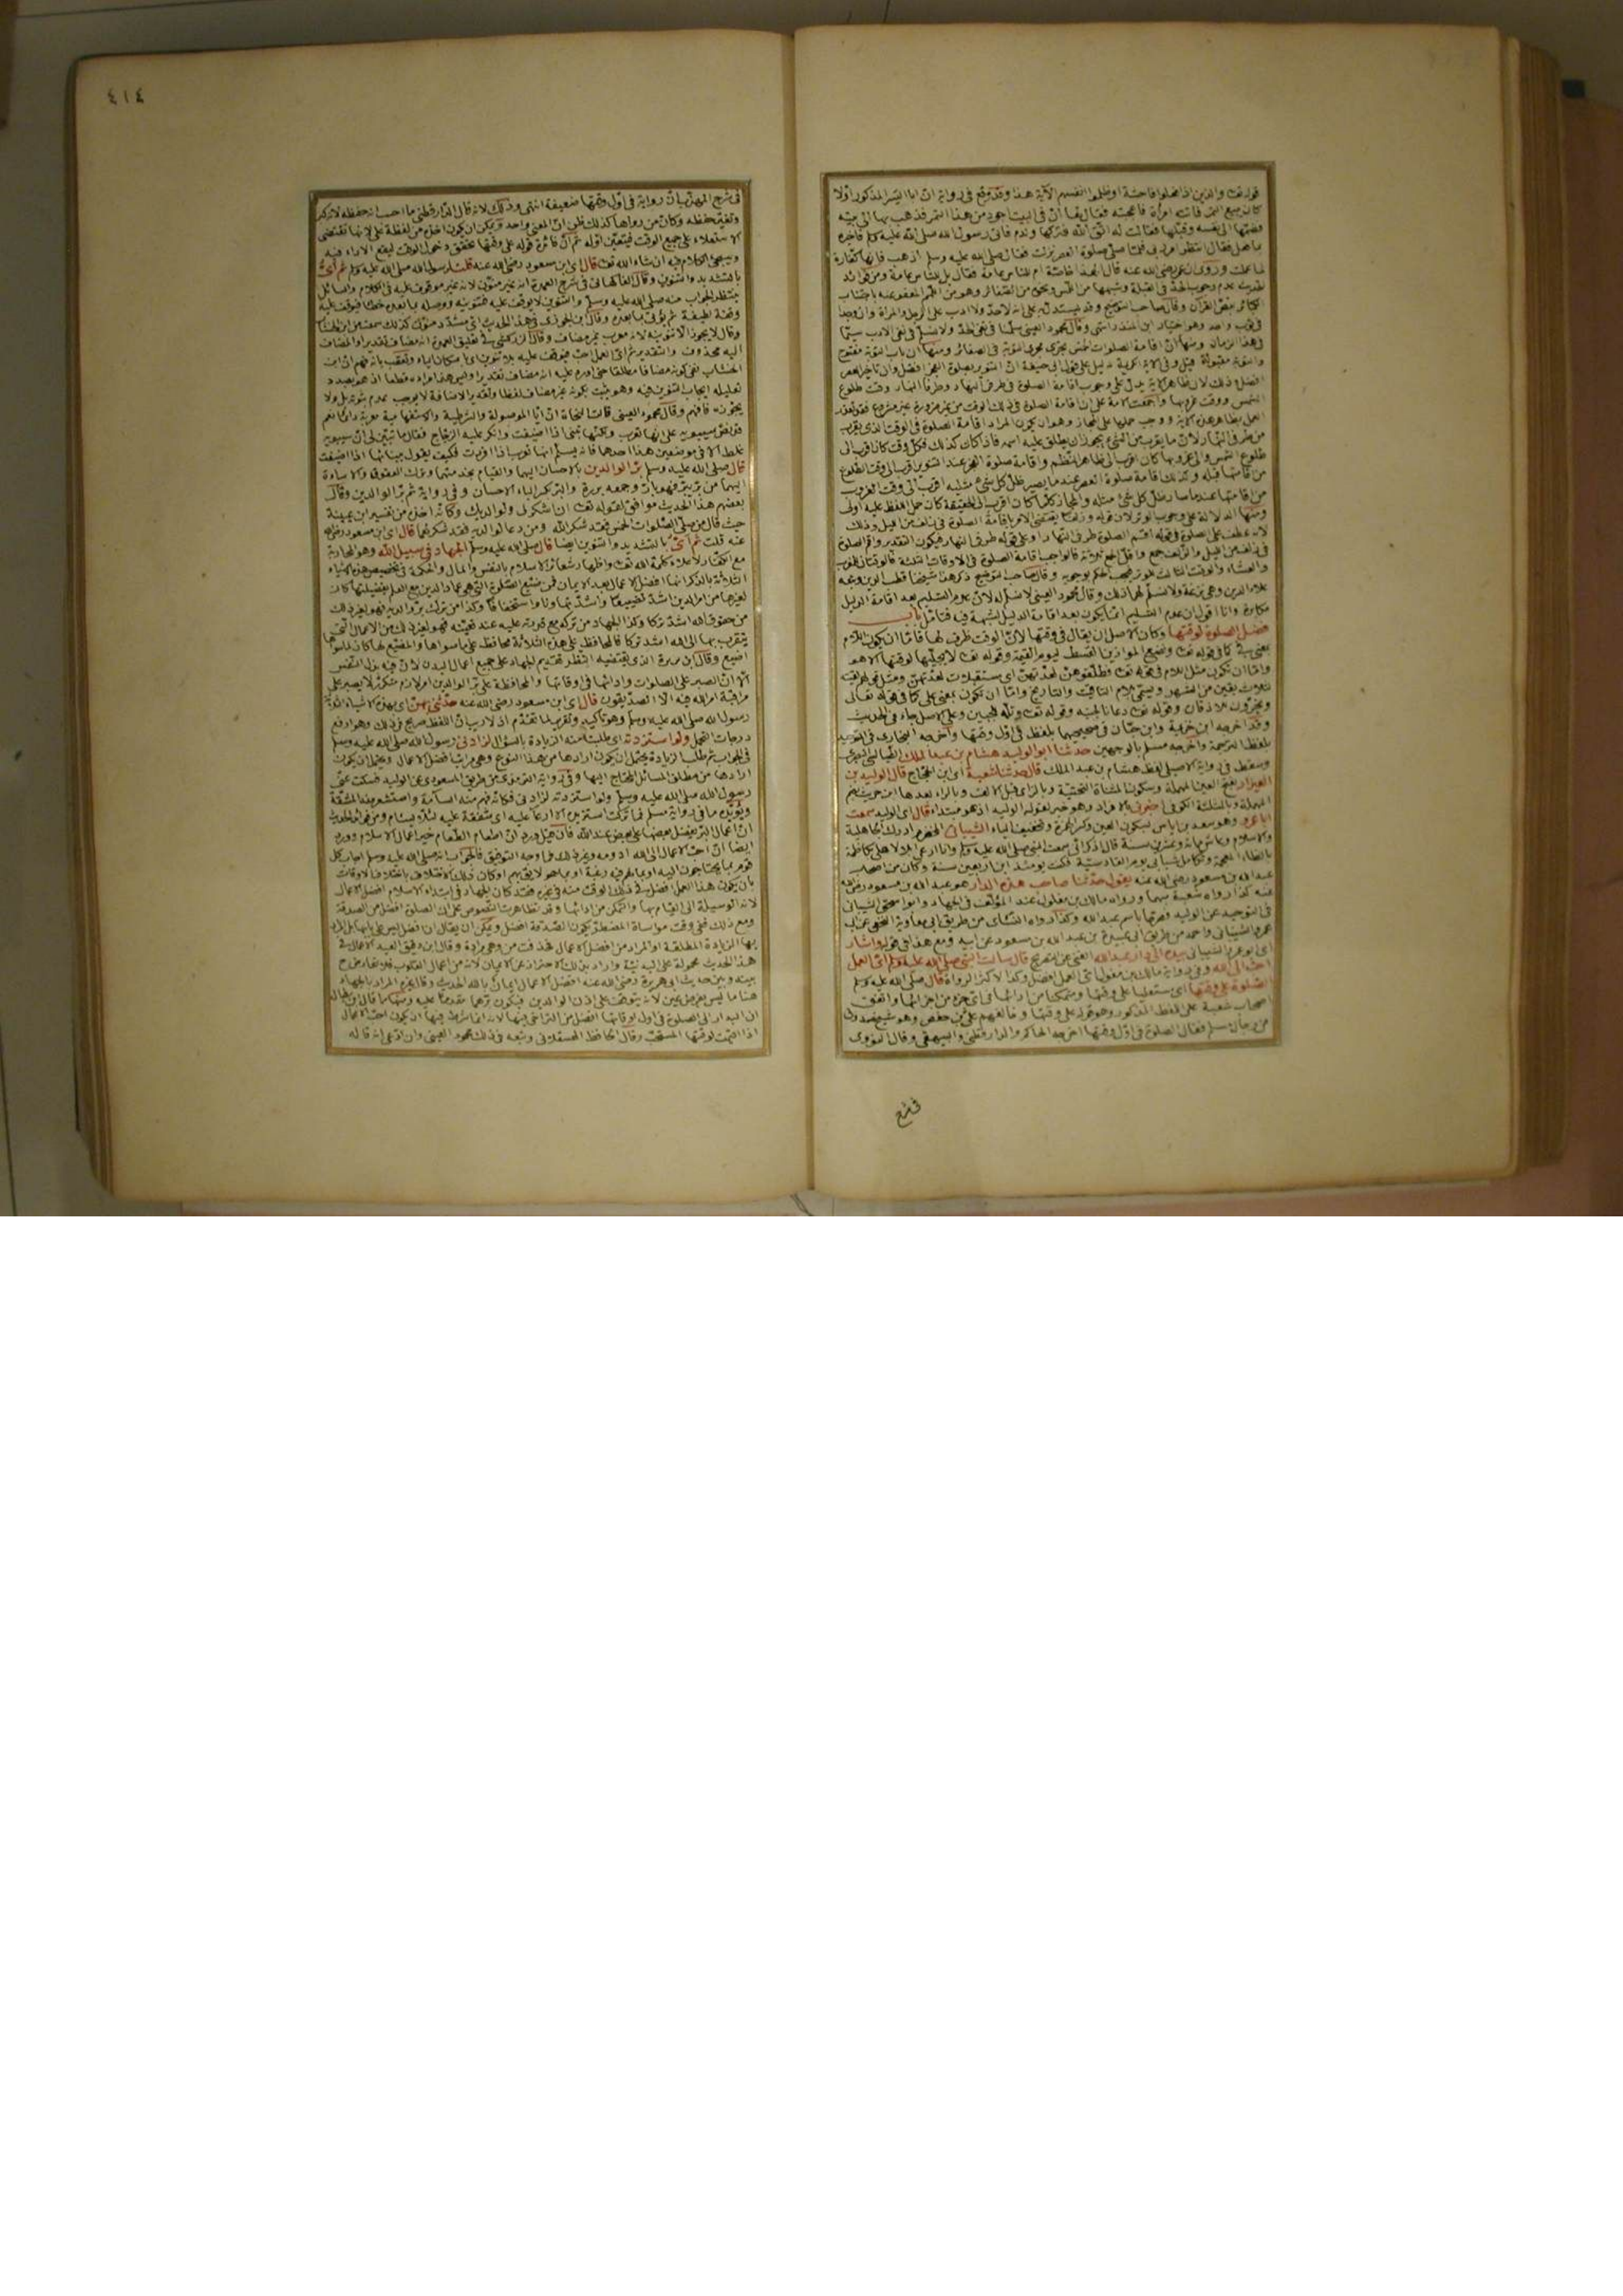 قوله تعالى والذين اذا فعلوا فاحشة او ظلموا انفسهم الآية هذا وقد وقع في رواية ان ابا اليسر المذكور اولا
كان يبيع التمر فاتته امرأة فاعجبته فقال لها ان في البيت اجود من هذا التمر فذهب بها الى بيته
فضمها الى نفسه وقبلها فقالت له اتق الله فتركها وندم فاتى رسول الله صلى الله عليه وسلم فاخبره
فقال انتظر امر ربي فلما صلى صلوة العصر نزلت فقال صلى الله عليه وسلم اذهب فانها كفارة
لما عملت وروى ان عمر رضي الله عنه قال اهذا له خاصة ام للناس عامة فقال بل للناس عامة ومن فوائد
الحديث عدم وجوب الحد في القبلة وشبهها من المس ونحوه من الصغائر وهو من اللمم المعفو عنه باجتناب
الكبائر بنص القرآن وقال صاحب التوضيح وقد يستدل به على انه لا حد ولا ادب على الرجل والمرأة وان وجدا
في ثوب واحد وهو اختيار ابن المنذر انتهى وقال محمود العيني سلمنا في نفي الحد ولا نسلم في نفي الادب سيما
في هذا الزمان ومنها ان اقامة الصلوات الخمس تجري مجرى التوبة في الصغائر ومنها ان باب التوبة مفتوح
والتوبة مقبولة قيل وفي الآية الكريمة دليل على قول ابي حنيفة ان التنوير بصلوة الفجر افضل وان تأخير العصر
افضل وذلك لان ظاهر الآية يدل على وجوب اقامة الصلوة في طرفي النهار وطرفا النهار وقت طلوع
الشمس ووقت غروبها واجمعت الامة على ان اقامة الصلوة في ذلك الوقت من غير ضرورة غير مشروع فقد تعذر
العمل بظاهر هذه الآية ووجب حملها على المجاز وهو ان يكون المراد اقامة الصلوة في الوقت الذي يقرب
من طرفي النهار لان ما يقرب من الشيء يجوز ان يطلق عليه اسمه فاذا كان كذلك فكل وقت كان اقرب الى
طلوع الشمس والى غروبها كان اقرب الى ظاهر اللفظ واقامة صلوة الفجر عند التنوير اقرب الى وقت الطلوع
من اقامتها قبله وكذلك اقامة صلوة العصر عندما يصير ظل كل شئ مثليه اقرب الى وقت الغروب
من اقامتها عندما صار ظل كل شئ مثله والمجاز كلما كان اقرب الى الحقيقة كان حمل اللفظ عليه اولى
ومنها الدلالة على وجوب الوتر لان قوله وزلفا يقتضي الامر باقامة الصلوة في زلف من الليل وذلك
لانه عطف على الصلوة في قوله اقم الصلوة طرفي النهار او على قوله طرفي النهار فيكون التقدير واقم الصلوة
في زلف من الليل والزلف جمع واقل الجمع ثلاثة فالواجب اقامة الصلوة في الاوقات الثلاثة فالوقتان للمغرب
والعشاء والوقت الثالث للوتر فيجب الحكم بوجوبه وقال صاحب التوضيح ذكر هذا شيخنا قطب الدين وتبعه
علاء الدين وهي نزعة ولا نسلم لهما ذلك وقال محمود العيني لا نسلم له لان عدم التسليم بعد اقامة الدليل
مكابرة وانا اقول ان عدم التسليم انما يكون بعد اقامة الدليل لشبهة فيه فتأمل باب
فضل الصلوة لوقتها وكان الاصل ان يقال في وقتها لان الوقت ظرف لها فاما ان يكون اللام
بمعنى في كما في قوله تعالى ونضع الموازين القسط ليوم القيمة وقوله تعالى لا يجليها لوقتها الا هو
واما ان تكون مثل اللام في قوله تعالى فطلقوهن لعدتهن اي مستقبلات لعدتهن ومثل قولهم لقيته
لثلاث بقين من الشهر ويسمى بلام التأقيت والتاريخ واما ان تكون بمعنى على كما في قوله تعالى
ويخرون للاذقان وقوله تعالى دعانا لجنبه وقوله تعالى وتله للجبين وعلى الاصل جاء في الحديث
وقد اخرجه ابن خزيمة وابن حبان في صحيحيهما بلفظ في اول وقتها واخرجه البخاري في التوحيد
بلفظ الترجمة واخرجه مسلم بالوجهين حدثنا ابو الوليد هشام بن عبد الملك الطيالسي البصري
وسقط في رواية الاصيلي لفظ هشام بن عبد الملك قال حدثنا شعبة اي ابن الحجاج قال الوليد بن
العيزار بفتح العين المهملة وسكون المثناة التحتية وبالزاي قبل الالف وبالراء بعدها ابن حريث بضم
المهملة وبالمثلثة الكوفي اخبرني بالافراد وهو خبر لقوله الوليد اذ هو مبتدأ قال اي الوليد سمعت
ابا عمرو وهو سعد بن اياس بسكون العين وكسر الهمزة وتخفيف الياء الشيباني المخضرم ادرك الجاهلية
والاسلام وعاش مائة وعشرين سنة قال اذكر اني سمعت النبي صلى الله عليه وسلم وانا ارعى ابلا لاهلي بكاظمة
بالظاء المعجمة وتكامل شبابي يوم القادسية فكنت يومئذ ابن اربعين سنة وكان من اصحاب
عبد الله بن مسعود رضي الله عنه يقول حدثنا صاحب هذه الدار هو عبد الله بن مسعود رضي الله
عنه كذا رواه شعبة مبهما ورواه مالك بن مغول عند المؤلف في الجهاد وابو اسحق الشيباني
في التوحيد عن الوليد فصرحا باسم عبد الله وكذا رواه النسائي من طريق ابي معاوية النخعي عن ابي
عمرو الشيباني واحمد من طريق ابي عبيدة بن عبد الله بن مسعود عن ابيه ومع هذا في قوله واشار
اي ابو عمرو الشيباني بيده الى دار عبد الله الغنى عن التصريح قال سألت النبي صلى الله عليه وسلم اي العمل
احب الى الله وفي رواية مالك بن مغول اي العمل افضل وكذا لاكثر الرواة قال صلى الله عليه وسلم
الصلوة على وقتها اي مستعليا على وقتها ومتمكنا من ادائها في اي جزء من اجزائها واتفق
اصحاب شعبة على اللفظ المذكور وهو قوله على وقتها وخالفهم علي بن حفص وهو شيخ صدوق
من رجال مسلم فقال الصلوة في اول وقتها اخرجه الحاكم والدارقطني والبيهقي وقال النووي
في شرح
٤١٤
في شرح المهذب ان رواية في اول وقتها ضعيفة انتهى وذلك لانه قال الدارقطني ما احسبه حفظه لانه كبر
وتغير حفظه وكان من رواها كذلك ظن ان المعنى واحد ويمكن ان يكون اخذه من لفظة على لانها تقتضي
الاستعلاء على جميع الوقت فيتعين اوله ثم ان فائدة قوله على وقتها تحقق دخول الوقت ليقع الاداء فيه
وسيجئ الكلام فيه ان شاء الله تعالى قال اي ابن مسعود رضي الله عنه قلت لرسول الله صلى الله عليه وسلم ثم اي
بالتشديد والتنوين وقال الفاكهاني في شرح العمدة انه غير منون لانه غير موقوف عليه في الكلام والسائل
ينتظر الجواب منه صلى الله عليه وسلم والتنوين لا يوقف عليه فتنوينه ووصله بما بعده خطأ فيوقف عليه
وقفة لطيفة ثم يؤتى بما بعده وقال ابن الجوزي في هذا الحديث اي مشدد منون كذلك سمعته من ابن الخشاب
وقال لا يجوز الا تنوينه لانه معرب غير مضاف وقال الزركشي في تعليق العمدة انه مضاف تقديرا والمضاف
اليه محذوف والتقدير ثم اي العمل احب فيوقف عليه بلا تنوين اي باسكان الياء وتعقب بانه فهم ان ابن
الخشاب نفى كونه مضافا مطلقا حتى اورد عليه انه مضاف تقديرا وليس هذا مراده قطعا اذ هو بصدد
تعليله ايجاب التنوين فيه وهو يثبت بكونه غير مضاف لفظا وتقدير الاضافة لا يوجب عدم تنوينه بل ولا
يجوزه فافهم وقال محمود العيني قالت النحاة ان ايا الموصولة والشرطية والاستفهامية معربة دائما نعم
فقد نص سيبويه على انها تعرب ولكنها تبنى اذا اضيفت وانكر عليه الزجاج فقال ما تبين لي ان سيبويه
غلط الا في موضعين هذا احدهما فانه يسلم انها تعرب اذا افردت فكيف يقول ببنائها اذا اضيفت
قال صلى الله عليه وسلم بر الوالدين بالاحسان اليهما والقيام بخدمتهما وترك العقوق والاساءة
اليهما من بر يبر فهو بار وجمعه بررة والبر بكسر الباء الاحسان وفي رواية ثم بر الوالدين وقال
بعضهم هذا الحديث موافق لقوله تعالى ان اشكر لي ولوالديك وكأنه اخذه من تفسير ابن عيينة
حيث قال من صلى الصلوات الخمس فقد شكر الله ومن دعا لوالديه فقد شكرهما قال اي ابن مسعود رضي الله
عنه قلت ثم اي بالتشديد والتنوين ايضا قال صلى الله عليه وسلم الجهاد في سبيل الله وهو المحاربة
مع الكفار لاعلاء كلمة الله تعالى واظهار شعائر الاسلام بالنفس والمال والحكمة في تخصيص هذه الاشياء
الثلاثة بالذكر انها افضل الاعمال بعد الايمان فمن ضيع الصلوة التي هي عماد الدين مع العلم بفضيلتها كان
لغيرها من امر الدين اشد تضييعا واشد تهاونا واستخفافا وكذا من ترك بر والديه فهو لغير ذلك
من حقوق الله اشد تركا وكذا الجهاد من تركه مع قدرته عليه عند تعينه فهو لغير ذلك من الاعمال التي
يتقرب بها الى الله اشد تركا فالمحافظ على هذه الثلاثة محافظ على ما سواها والمضيع لها كان لما سواها
اضيع وقال ابن بزيزة الذي يقتضيه النظر تقديم الجهاد على جميع اعمال البدن لان فيه بذل النفس
الا ان الصبر على الصلوات وادائها في اوقاتها والمحافظة على بر الوالدين امر لازم متكرر لا يصبر على
مراقبة امر الله فيه الا الصديقون قال اي ابن مسعود رضي الله عنه حدثني بهن اي بهذه الاشياء الثلاثة
رسول الله صلى الله عليه وسلم وهو تأكيد وتقرير لما تقدم اذ لا ريب ان اللفظ صريح في ذلك وهو ارفع
درجات التحمل ولو استزدته اي طلبت منه الزيادة بالسؤال لزادني رسول الله صلى الله عليه وسلم
في الجواب ثم طلب الزيادة يحتمل ان يكون ارادها من هذا النوع وهي مراتب افضل الاعمال ويحتمل ان يكون
ارادها من مطلق المسائل المحتاج اليها وفي رواية الترمذي من طريق المسعودي عن الوليد فسكت عني
رسول الله صلى الله عليه وسلم ولو استزدته لزادني فكأنه فهم منه السآمة واستشعر منه المشقة
ويؤيده ما في رواية مسلم فما تركت استزيده الا ارعاء عليه اي شفقة عليه لئلا يسأم ومن فوائد الحديث
ان اعمال البر يفضل بعضها على بعض عند الله فان قيل ورد ان اطعام الطعام خير اعمال الاسلام وورد
ايضا ان احب الاعمال الى الله ادومه وغير ذلك فما وجه التوفيق فالجواب انه صلى الله عليه وسلم اجاب كل
قوم بما يحتاجون اليه او بما لهم فيه رغبة او بما هو لائق بهم او كان ذلك الاختلاف باختلاف الاوقات
بان يكون هذا العمل افضل في ذلك الوقت منه في غيره فقد كان الجهاد في ابتداء الاسلام افضل الاعمال
لانه الوسيلة الى القيام بها والتمكن من ادائها وقد تظاهرت النصوص على ان الصلوة افضل من الصدقة
ومع ذلك ففي وقت مواساة المضطر يكون الصدقة افضل ويمكن ان يقال ان افضل ليس على بابها بل المراد
بها الزيادة المطلقة او المراد من افضل الاعمال فحذفت من وهي مرادة وقال ابن دقيق العيد الاعمال في
هذا الحديث محمولة على البدنية واراد بذلك الاحتراز عن الايمان لانه من اعمال القلوب فلا تعارض ح
بينه وبين حديث ابي هريرة رضي الله عنه افضل الاعمال ايمان بالله الحديث وقال غيره المراد بالجهاد
هنا ما ليس بفرض عين لانه يتوقف على اذن الوالدين فيكون برهما مقدما عليه ومنها ما قال ابن بطال
ان البدار الى الصلوة في اول اوقاتها افضل من التراخي فيها لانه انما شرط فيها ان يكون احب الاعمال
اذا اقيمت لوقتها المستحب وقال الحافظ العسقلاني وتبعه في ذلك محمود العيني وان ادعى انه قاله